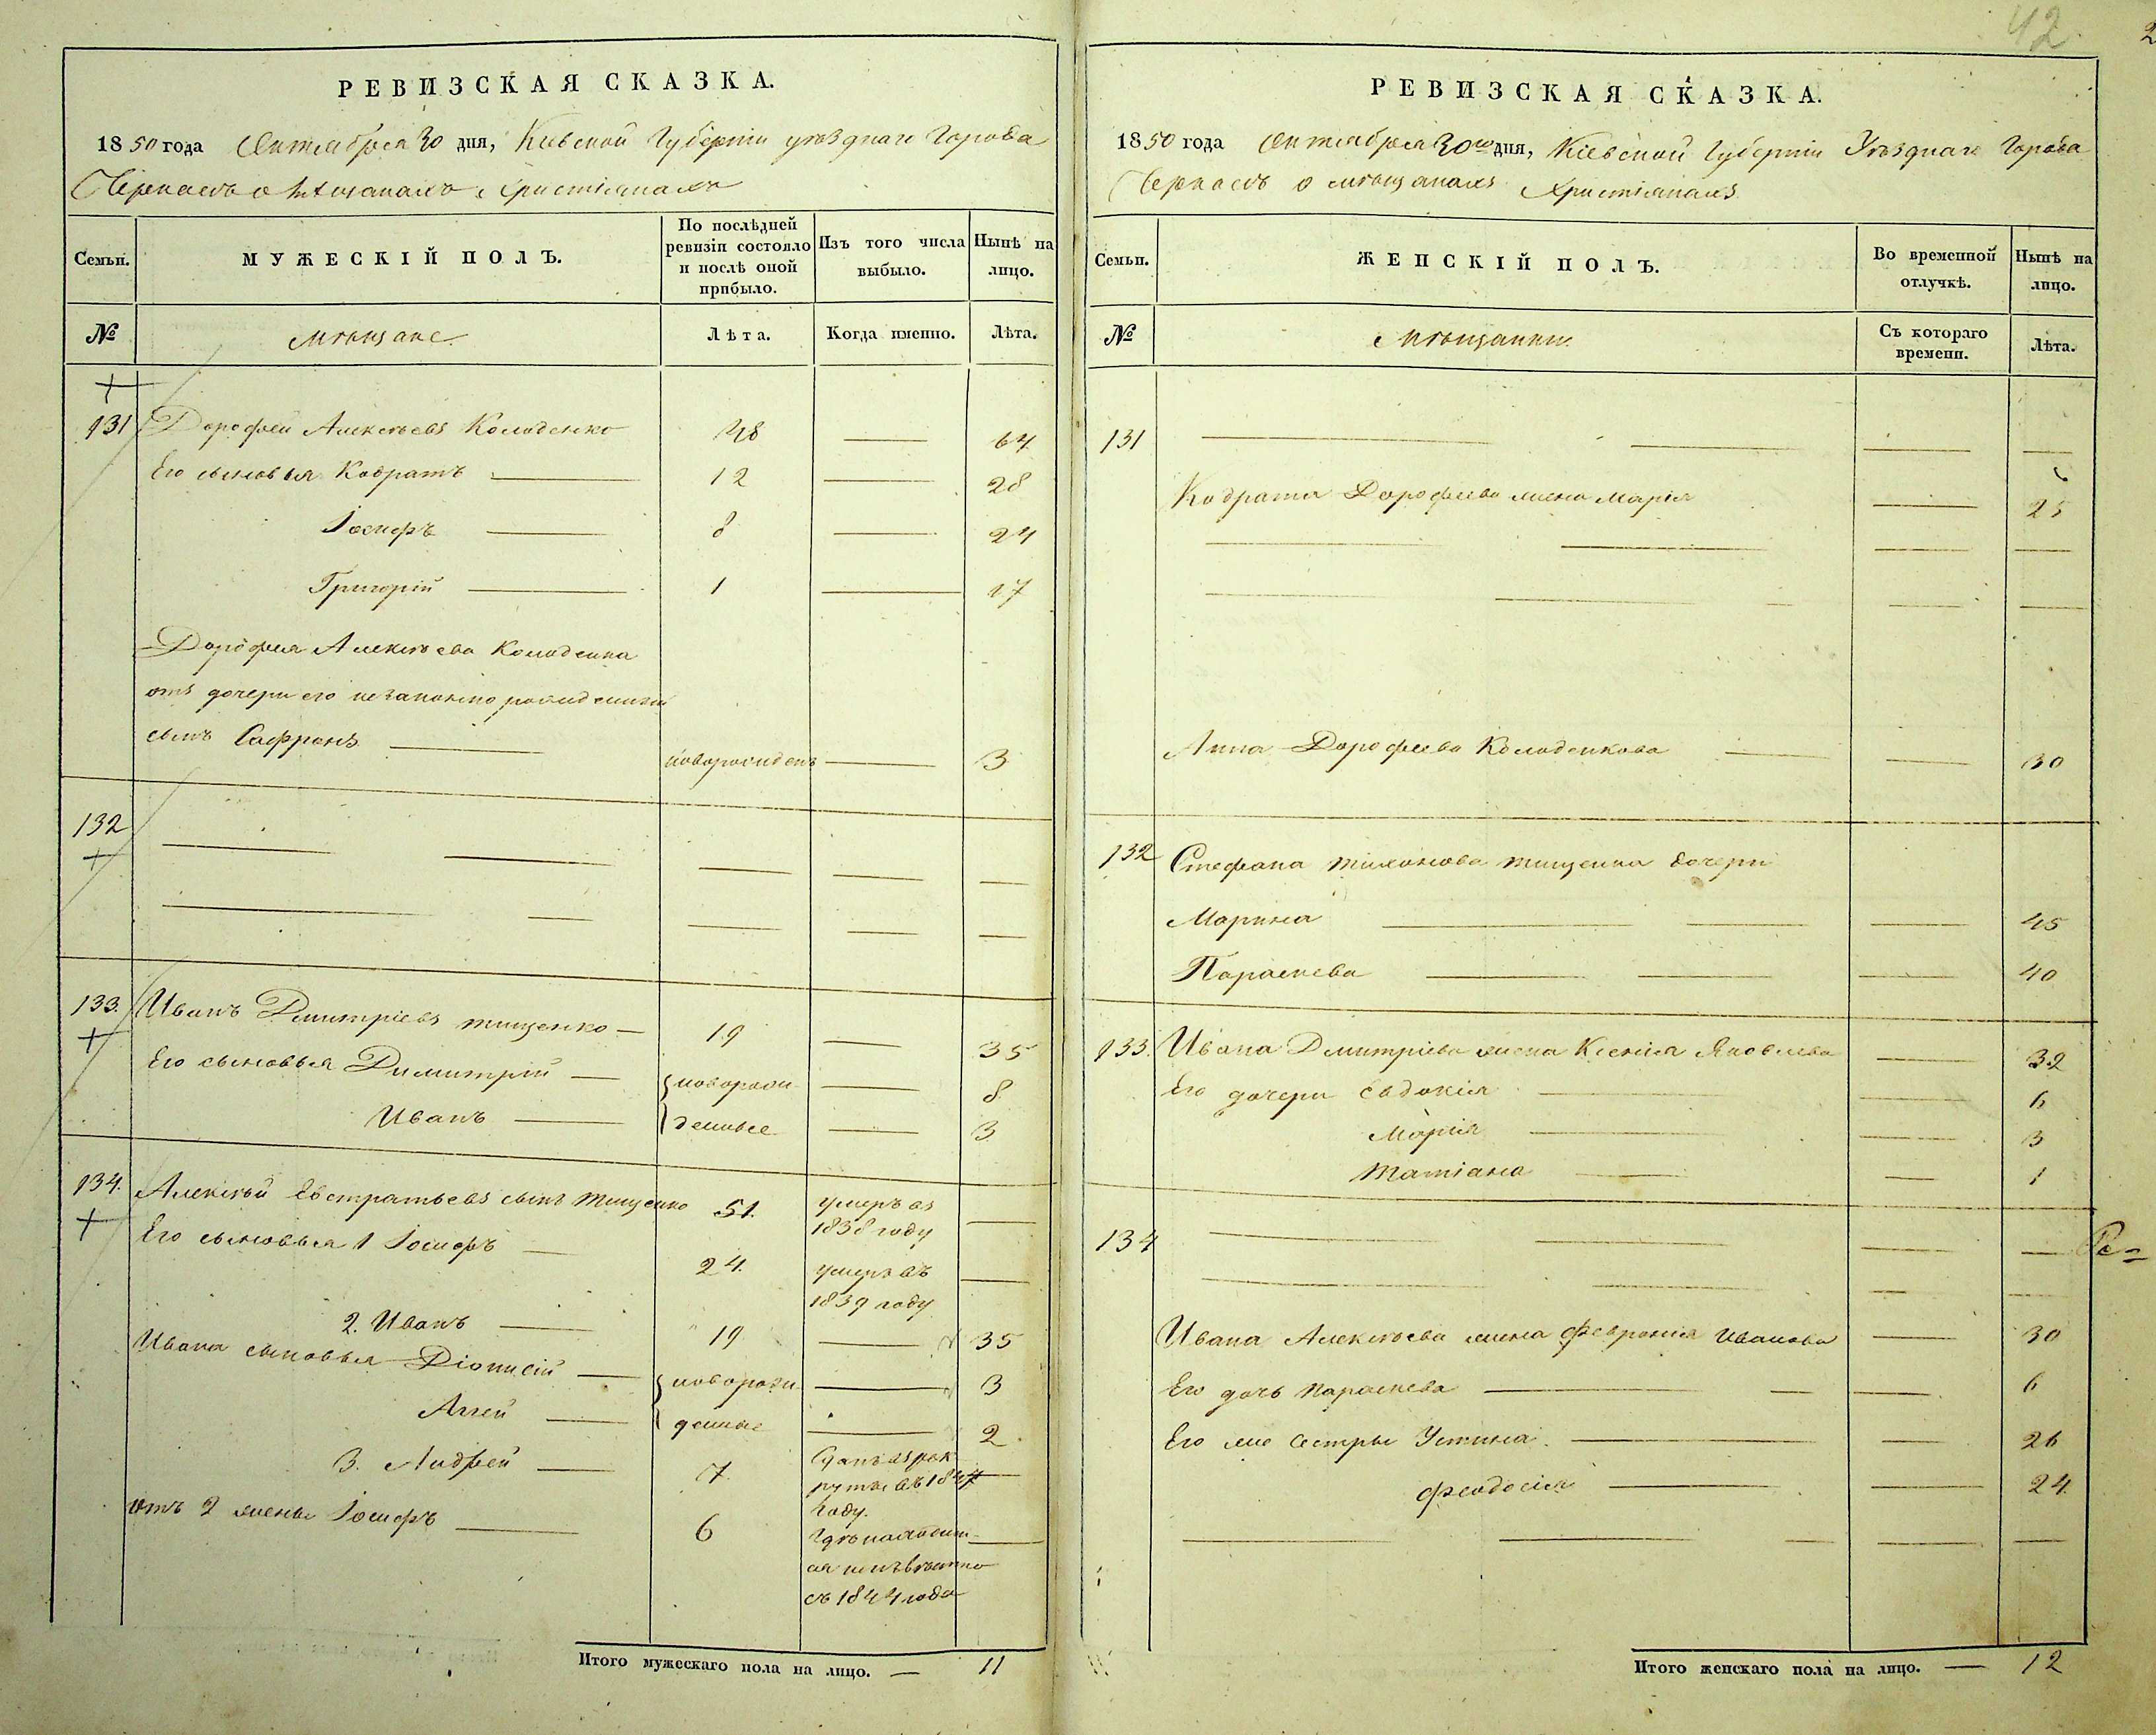 42.
2
РЕВИЗСКАЯ СКАЗКА.
1850 года Октября 30 дня, Кіевской Губерніи уѣзднаго Города
Черкасъ о мѣщанахъ христіянахъ
Семьи.
МУЖЕСКІЙ ПОЛЪ.
По послѣдней ревизіи состояло и послѣ оной прибыло.
Изъ того числа выбыло.
Нынѣ на лицо.
№
Мѣщане
Лѣта.
Когда именно.
Лѣта.
131 Дорофей Алексѣевъ Колоденко 48 — 64
Его сыновья Кодратъ — 12 — 28
Іосифъ — 8 — 24
Григорій — 1 — 17
Дорофея Алексѣева Колоденка
отъ дочери его незаконно рожденный
сынъ Сафронъ — новорожденъ — 3
132 — — — — —
— — — — —
133. Иванъ Дмитріевъ Тищенко — 19 — 35
Его сыновья Димитрій — новорож — 8
Иванъ — денные — 3
134. Алексѣй Евстратьевъ сынъ Тищенко 51. умеръ въ 1838 году —
Его сыновья 1 Іосифъ — 24. умеръ въ 1839 году —
2. Иванъ — 19 — 35
Ивана сыновья Діонисій — новорож — 3
Аггей — денные — 2
3. Андрей — 7 Сданъ въ рекруты въ 1847 году. —
отъ 2 жены Іосифъ — 6 Гдѣ находится неизвѣстно съ 1844 года —
Итого мужескаго пола на лицо. — 11
РЕВИЗСКАЯ СКАЗКА.
1850 года Октября 30го дня, Кіевской Губерніи Уѣзднаго Города
Черкасъ о мѣщанахъ Христіянахъ
Семьи.
ЖЕНСКІЙ ПОЛЪ.
Во временной отлучкѣ.
Нынѣ на лицо.
№
Мѣщанки
Съ котораго времени.
Лѣта.
131 — — — —
Кодрата Дорофеева жена Марія — 25
— — — —
— — — —
Анна Дорофеева Колоденкова — — 30
132 Стефана Тихонова Тищенка дочери
Марина — — — 45
Параскева — — — 40
133. Ивана Дмитріева жена Ксенія Яковлева — 32
Его дочери Евдокія — — 6
Марія — — 3
Татіана — — 1
134 — — — —
Ре=
— — — —
Ивана Алексѣева жена Февронія Иванова — 30
Его дочь Параскева — — — 6
Его же сестры Устина. — — 26
Феодосія — — 24.
— — — — —
Итого женскаго пола на лицо. — 12